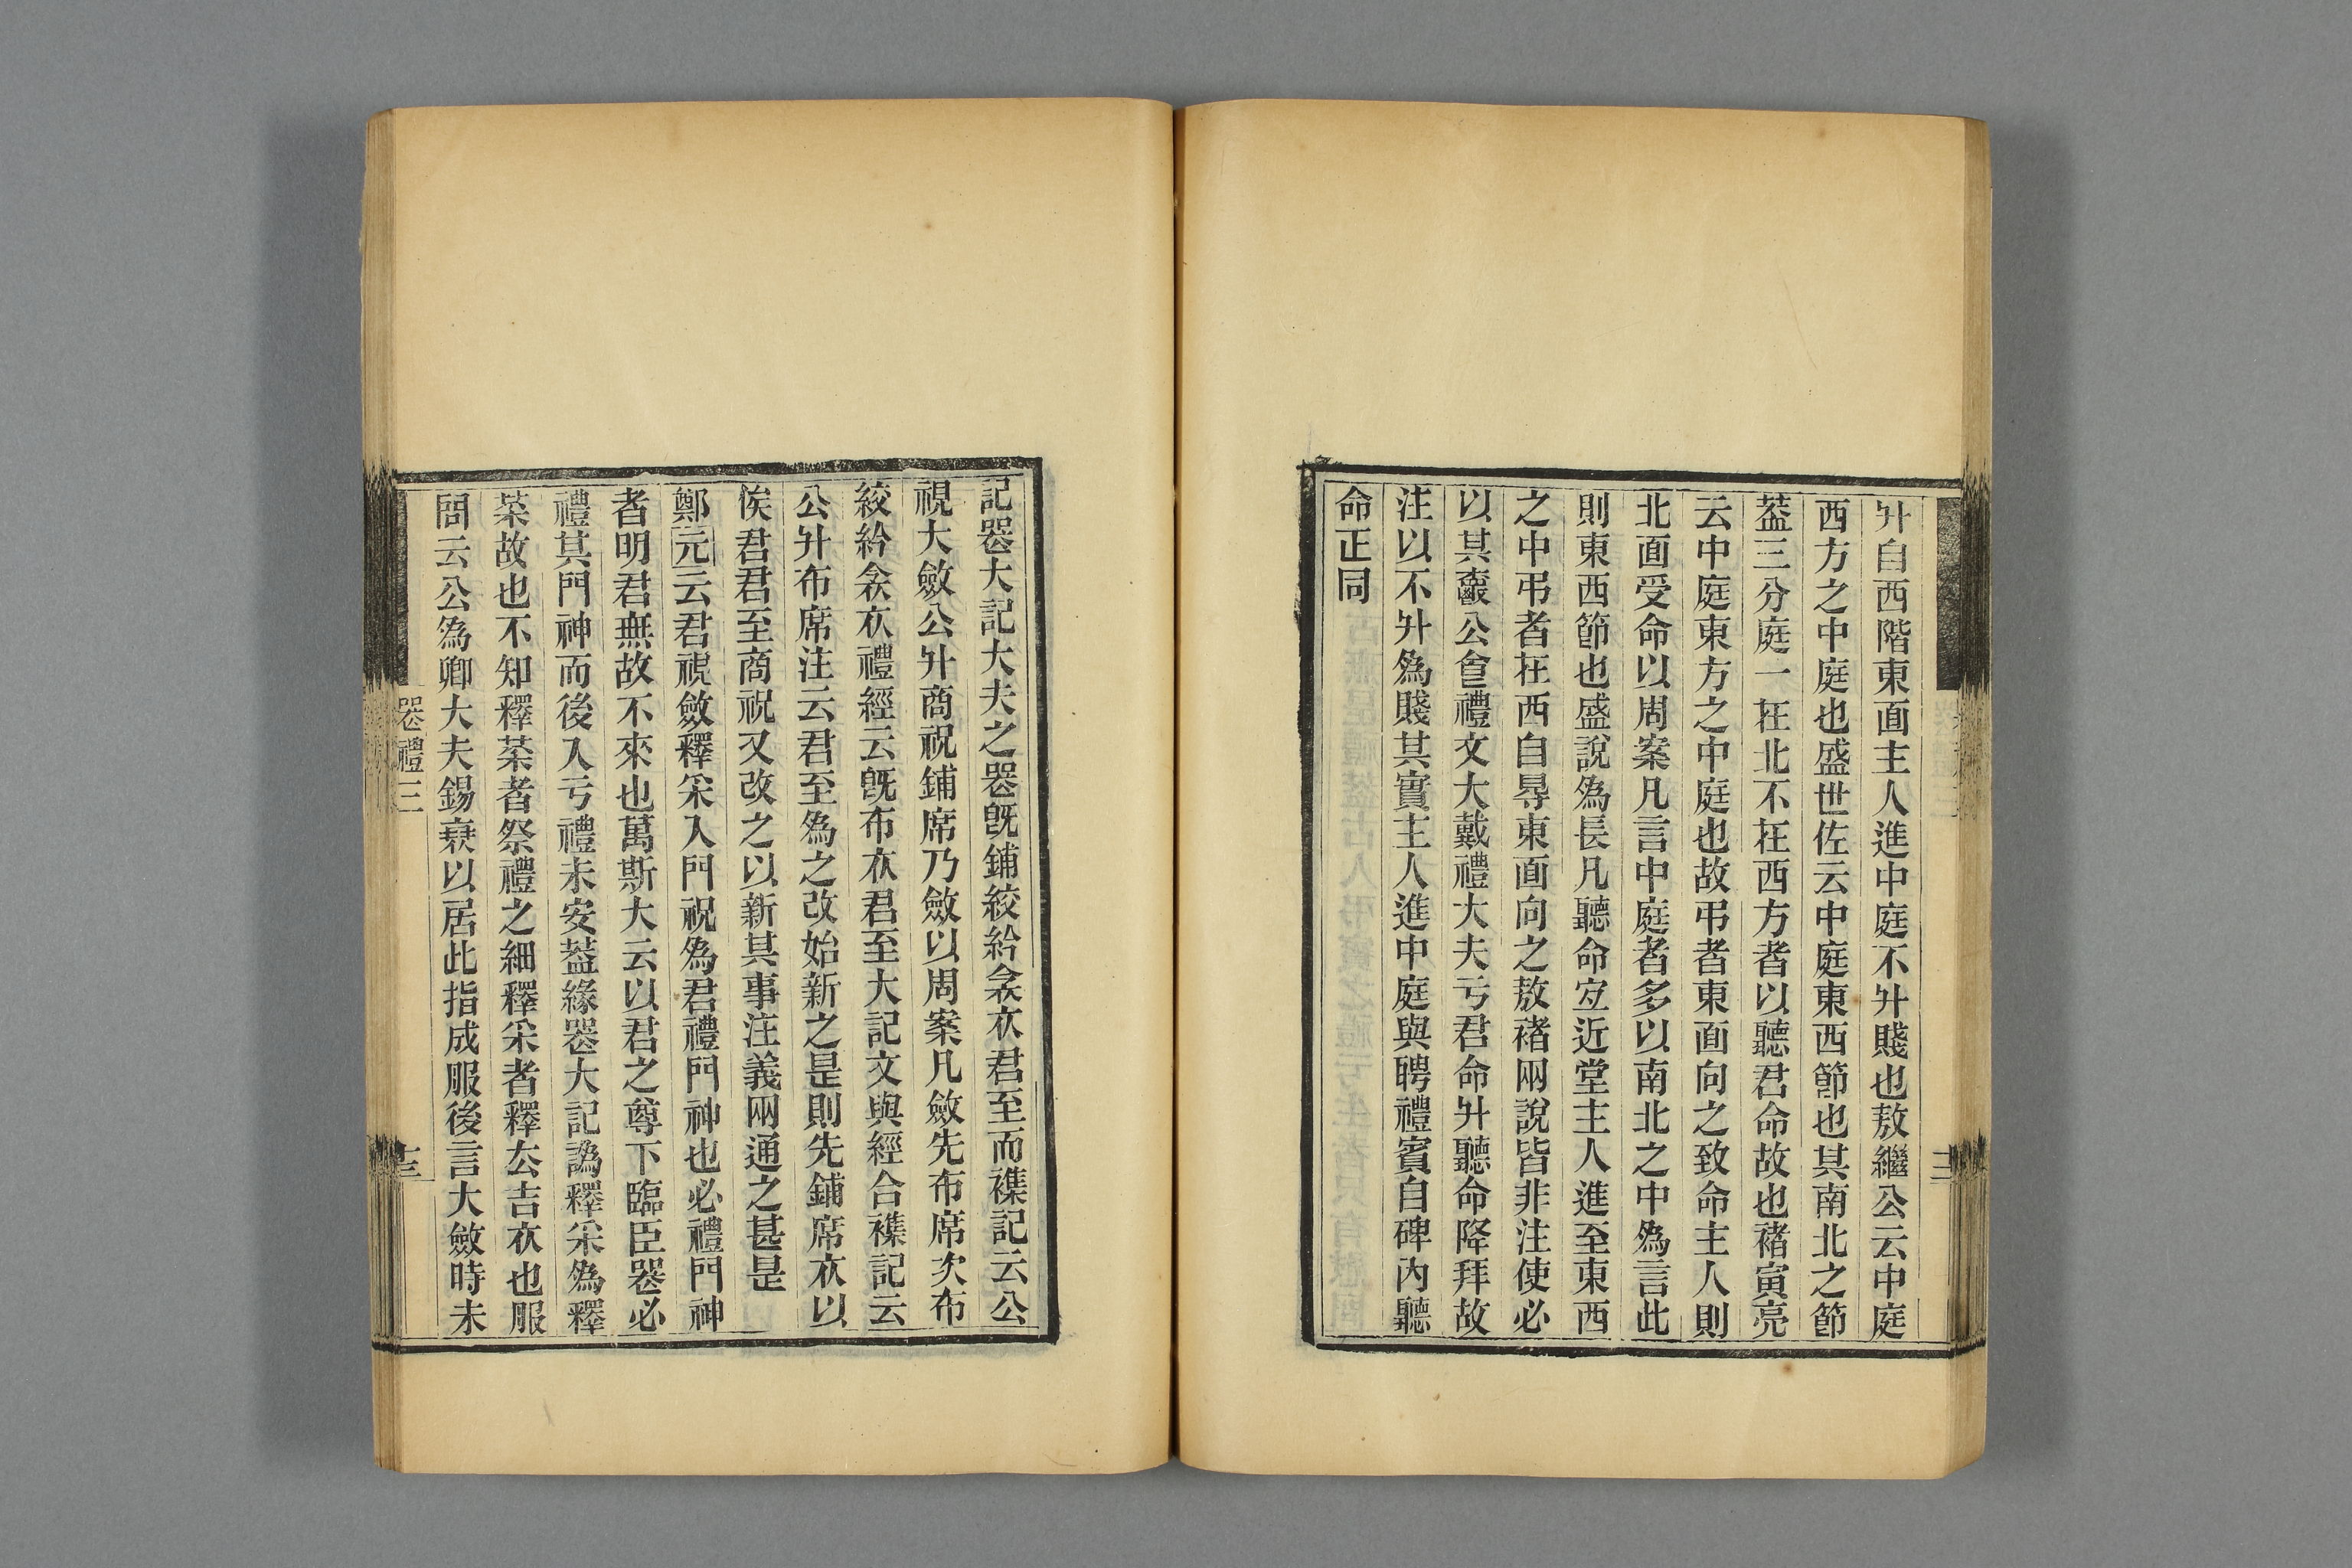 升自西階東面主人進中庭不升賤也敖繼公云中庭
西方之中庭也盛世佐云中庭東西節也其南北之節
葢三分庭一在北不在西方者以聽君命故也褚寅亮
云中庭東方之中庭也故弔者東面向之致命主人則
北面受命以周案凡言中庭者多以南北之中為言此
則東西節也盛說為長凡聽命宐近堂主人進至東西
之中弔者在西自㝵東面向之敖褚兩說皆非注使必
以其爵公食禮文大戴禮大夫亏君命升聽命降拜故
注以不升為賤其實主人進中庭與聘禮賓自碑內聽
命正同
記喪大記大夫之喪旣鋪絞紟衾衣君至而襍記云公
視大斂公升商祝鋪席乃斂以周案凡斂先布席次布
絞紟衾衣禮經云旣布衣君至大記文與經合襍記云
公升布席注云君至為之改始新之是則先鋪席衣以
俟君君至商祝又改之以新其事注義兩通之甚是
鄭元云君視斂釋采入門祝為君禮門神也必禮門神
者明君無故不來也萬斯大云以君之尊下臨臣喪必
禮其門神而後入亏禮未安葢緣喪大記譌釋采為釋
菜故也不知釋菜者祭禮之細釋采者釋去吉衣也服
問云公為卿大夫錫衰以居此指成服後言大斂時未
喪禮三
十三